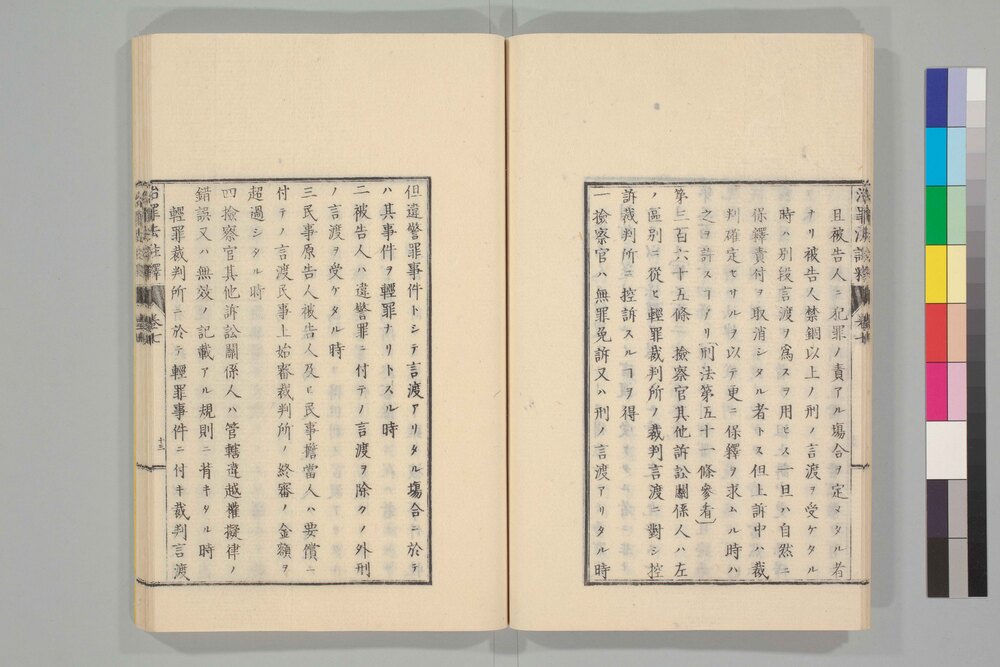 且被告人ニ犯罪ノ責アル塲合ヲ定メタル者
ナリ被告人禁錮以上ノ刑ノ言渡ヲ受ケタル
時ハ別段言渡ヲ爲スヲ用ヒス一旦ハ自然ニ
保釋責付ヲ取消シタル者トス但上訴中ハ裁
判確定セサルヲ以テ更ニ保釋ヲ求ムル時ハ
之ヲ許スヿアリ〔刑法第五十一條參看〕
第三百六十五條 檢察官其他訴訟關係人ハ左
ノ區別ニ從ヒ輕罪裁判所ノ裁判言渡ニ對シ控
訴裁判所ニ控訴スルヿヲ得
一檢察官ハ無罪免訴又ハ刑ノ言渡アリタル時
但違警罪事件トシテ言渡アリタル塲合ニ於テ
ハ其事件ヲ輕罪ナリトスル時
二被告人ハ違警罪ニ付テノ言渡ヲ除クノ外刑
ノ言渡ヲ受ケタル時
三民事原告人被告人及ヒ民事擔當人ハ要償ニ
付テノ言渡民事上始審裁判所ノ終審ノ金額ヲ
超過シタル時
四檢察官其他訴訟關係人ハ管轄違越權擬律ノ
錯誤又ハ無效ノ記載アル規則ニ背キタル時
輕罪裁判所ニ於テ輕罪事件ニ付キ裁判言渡
治罪法註釋 卷七
十三